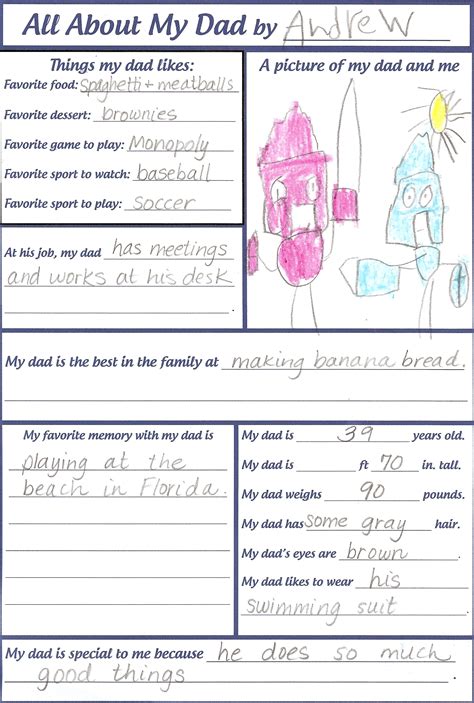 All About My Dad by Andrew
Things my dad likes:
Favorite food: spaghetti + meatballs
Favorite dessert: brownies
Favorite game to play: Monopoly
Favorite sport to watch: baseball
Favorite sport to play: soccer
A picture of my dad and me
At his job, my dad has meetings
and works at his desk
My dad is the best in the family at making banana bread.
My favorite memory with my dad is
playing at the
beach in Florida.
My dad is 39 years old.
My dad is ft 70 in. tall.
My dad weighs 90 pounds.
My dad has some gray hair.
My dad's eyes are brown
My dad likes to wear his
swimming suit
My dad is special to me because he does so much
good things